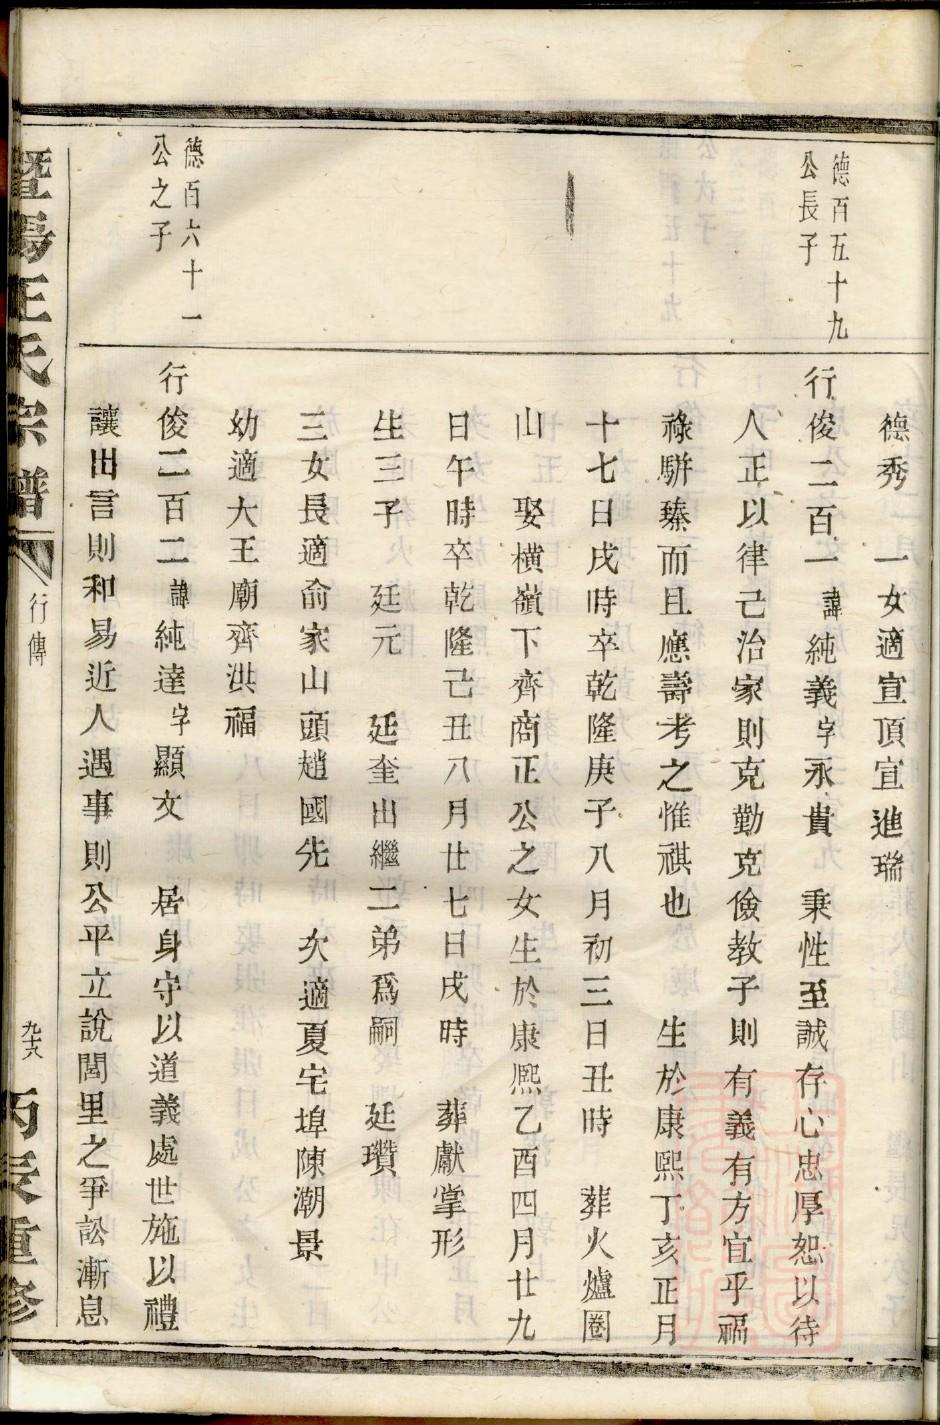 德百五十九
公長子
德百六十一
公之子
德秀　一女適宣頂宣進瑞
行俊二百一諱純義字永貴　秉性至誠存心忠厚恕以待
人正以律己治家則克勤克儉教子則有義有方宜乎福
祿駢臻而且應壽考之惟祺也　生於康熙丁亥正月
十七日戌時卒乾隆庚子八月初三日丑時　葬火爐圈
山　娶橫嶺下齊商正公之女生於康熙乙酉四月廿九
日午時卒乾隆己丑八月廿七日戌時　葬獻掌形
生三子　廷元　廷奎出繼二弟爲嗣　廷瓚
三女長適俞家山頭趙國先　次適夏宅埠陳潮景
幼適大王廟齊洪福
行俊二百二諱純達字顯文　居身守以道義處世施以禮
讓出言則和易近人遇事則公平立說閭里之爭訟漸息
暨陽王氏宗譜
行傳
九十六
丙辰重修